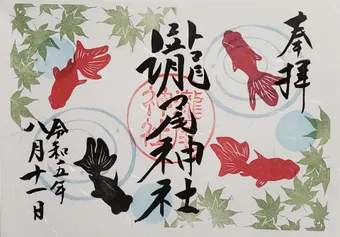 奉拝
瀧尾神社
令和五年
八月十一日